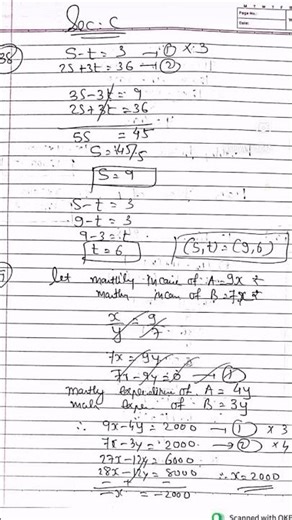 M T W T F S S
Page No.:
Date:
Sec: C
38)
S-t = 3 —① × 3
2S+3t = 36 —②
3S-3t = 9
2S+3t = 36
5S = 45
S = 45/5
S = 9
S-t = 3
9-t = 3
9-3 = t
t = 6
(S,t) = (9,6)
let monthly income of A = 9x ₹
of B = 7x ₹
x/y = 9/7
7x = 9y
7x-9y = 0 —①
of A = 4y
of B = 3y
∴ 9x-4y = 2000 —① × 3
7x-3y = 2000 —② × 4
27x-12y = 6000
28x-12y = 8000 ∴ x = 2000
- + -
-x = -2000
Scanned with OKE